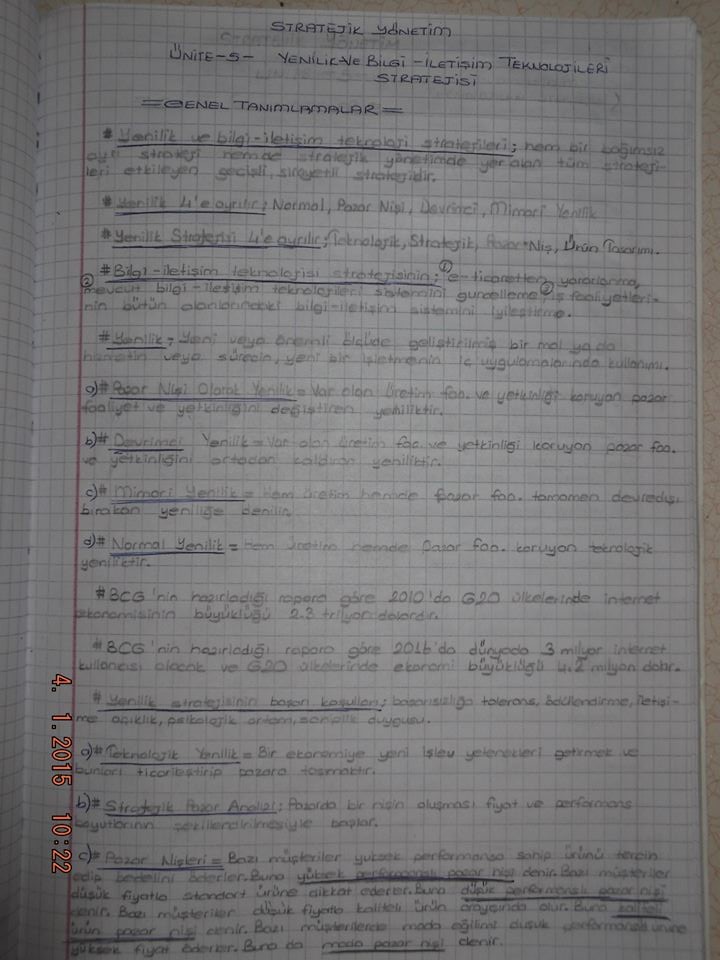 STRATEJİK YÖNETİM
ÜNİTE-5- YENİLİK VE BİLGİ-İLETİŞİM TEKNOLOJİLERİ
STRATEJİSİ
GENEL TANIMLAMALAR
# Yenilik ve bilgi-iletişim teknoloji stratejileri; hem bir bağımsız
ayrı strateji hemde stratejik yönetimde yer alan tüm strateji-
leri etkileyen geçişli, sirayetli stratejidir.
# Yenilik 4'e ayrılır; Normal, Pazar Nişi, Devrimci, Mimari Yenilik
# Yenilik Stratejisi 4'e ayrılır; Teknolojik, Stratejik, Pazar Niş, Ürün Tasarımı.
# Bilgi-iletişim teknolojisi stratejisinin; ① e-ticaretten yararlanma,
② mevcut bilgi-iletişim teknolojileri sistemini güncelleme, ③ iş faaliyetleri-
nin bütün alanlarındaki bilgi-iletişim sistemini iyileştirme.
# Yenilik = Yeni veya önemli ölçüde geliştirilmiş bir mal ya da
hizmetin veya sürecin, yeni bir işletmenin iç uygulamalarında kullanımı.
a)# Pazar Nişi Olarak Yenilik = Var olan üretim faa. ve yetkinliği koruyan pazar
faaliyet ve yetkinliğini değiştiren yeniliktir.
b)# Devrimci Yenilik = Var olan üretim faa. ve yetkinliği koruyan pazar faa.
ve yetkinliğini ortadan kaldıran yeniliktir.
c)# Mimari Yenilik = Hem üretim hemde pazar faa. tamamen devredışı
bırakan yeniliğe denilir.
d)# Normal Yenilik = hem üretim hemde pazar faa. koruyan teknolojik
yeniliktir.
# BCG'nin hazırladığı rapora göre 2010'da G20 ülkelerinde internet
ekonomisinin büyüklüğü 2.3 trilyon dolardır.
# BCG'nin hazırladığı rapora göre 2016'da dünyada 3 milyar internet
kullanıcısı olacak ve G20 ülkelerinde ekonomi büyüklüğü 4.2 milyon dolar.
# Yenilik stratejisinin başarı koşulları; başarısızlığa tolerans, ödüllendirme, iletişi-
me açıklık, psikolojik ortam, sahiplik duygusu.
a)# Teknolojik Yenilik = Bir ekonomiye yeni işlev yetenekleri getirmek ve
bunları ticarileştirip pazara taşımaktır.
b)# Stratejik Pazar Analizi; Pazarda bir nişin oluşması fiyat ve performans
boyutlarının şekillendirilmesiyle başlar.
c)# Pazar Nişleri = Bazı müşteriler yüksek performansa sahip ürünü tercih
edip bedelini öderler. Buna yüksek performanslı pazar nişi denir. Bazı müşteriler
düşük fiyatla standart ürüne dikkat ederler. Buna düşük performanslı pazar nişi
denir. Bazı müşteriler düşük fiyatla kaliteli ürün arayışında olur. Buna kaliteli
ürün pazar nişi denir. Bazı müşterilerde moda eğilimi düşük performanslı ürüne
yüksek fiyat öderler. Buna da moda pazar nişi denir.
4. 1. 2015 10:22